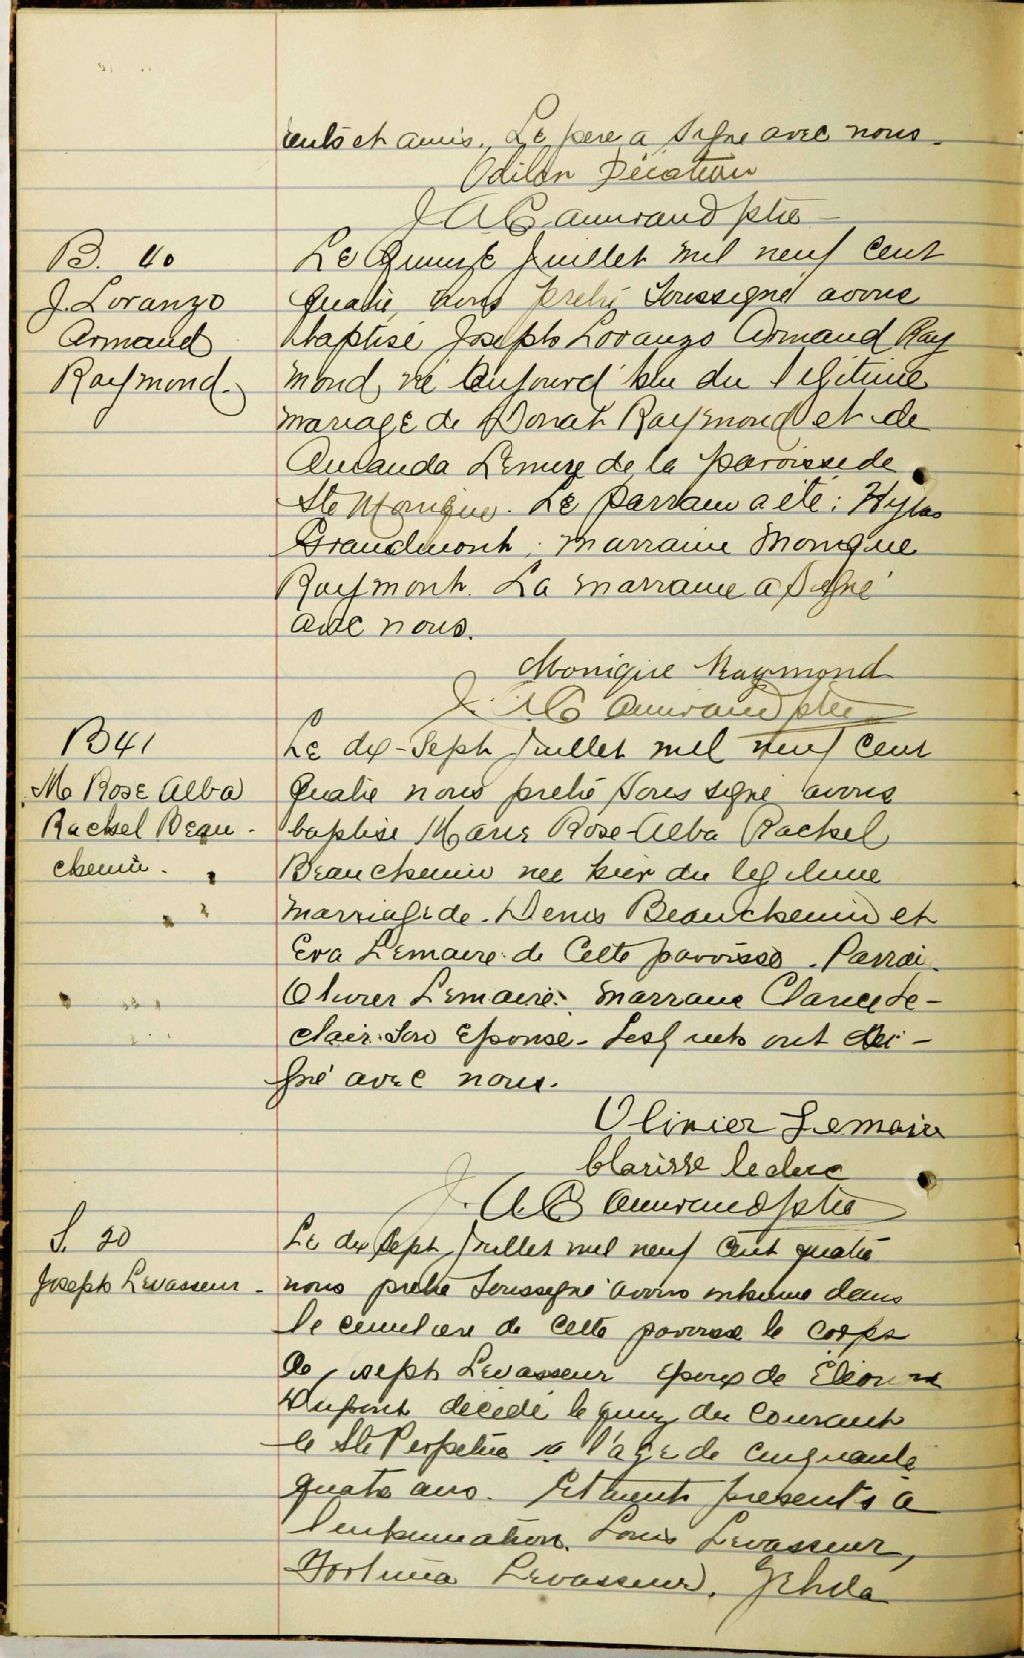 rents et amis. Le pere a signe avec nous.
Odilon
J A C ptre
B. 40
J. Loranzo
Armand
Raymond.
Le quinze Juillet mil neuf cent
quatre, nous pretre soussigné avons
baptisé Joseph Loranzo Armand Ray
mond, né aujourd'hui du legitime
mariage de Donat Raymond et de
Amanda Lemire de la paroisse de
Ste Monique. Le parrain a été: Hylas
Grandmont; marraine Monique
Raymont. La marraine a signé
avec nous.
Monique Raymond
J. A C ptre
B 41
M Rose Alba
Rachel Beau-
chemin.
Le dix-sept Juillet mil neuf cent
quatre nous pretre soussigné avons
baptise Marie Rose-Alba Rachel
Beauchemin nee hier du legitime
marriage de Denis Beauchemin et
Eva Lemaire de cette paroisse. Parrai.
Olivier Lemaire. marraine Le-
clair son epouse. Lesquels ont si-
gné avec nous.
Olivier Lemaire
Clarisse leclerc
J. A C ptre
S. 20
Joseph Levasseur.
Le dix sept Juillet mil neuf cent quatre
nous pretre soussigné avons inhumé dans
le cimetiere de cette paroisse le corps
de Joseph Levasseur epoux de
Dupont décédé le du courant
Ste Perpetue a l'age de cinquante
quatre ans. Etaient presents à
l'inhumation. Louis Levasseur,
Levasseur,